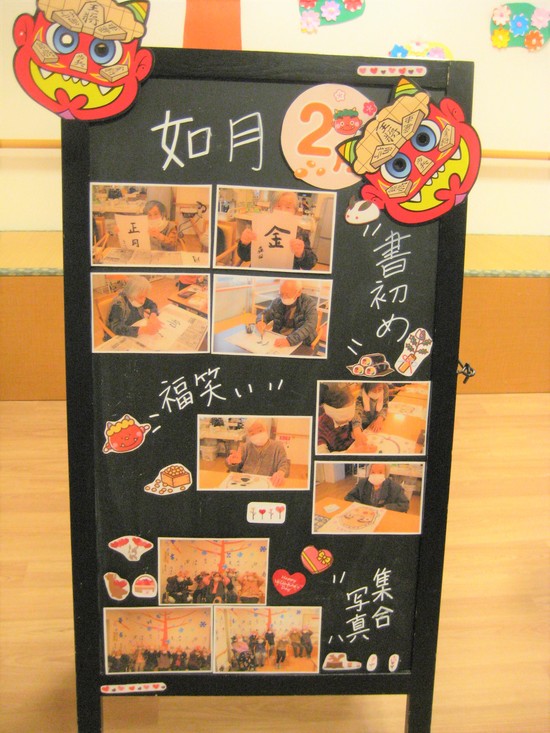 如月
2月
正月
金
書初め
福笑い
集合
写真